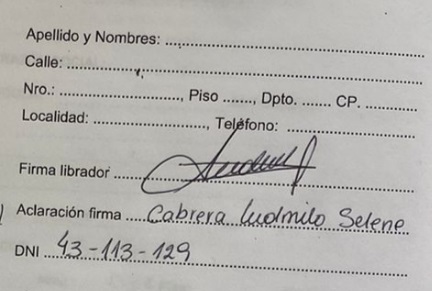 Apellido y Nombres: ....................
Calle: ....................
Nro.: ...................., Piso ......., Dpto. ....... CP. ............
Localidad: ...................., Teléfono: ....................
Firma librador ....................
Aclaración firma .... Cabrera Ludmilo Selene
DNI .... 43-113-129